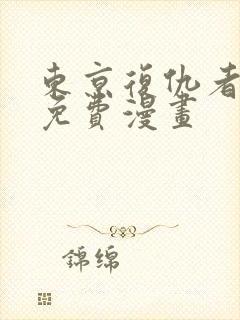 東京復仇者
免費漫畫
錦绵